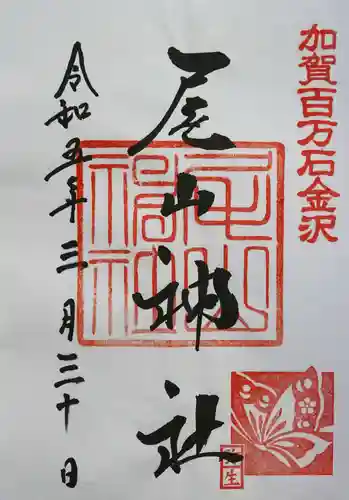 加賀百万石金沢
尾山神社
尾山神社
令和五年三月三十日
弥生